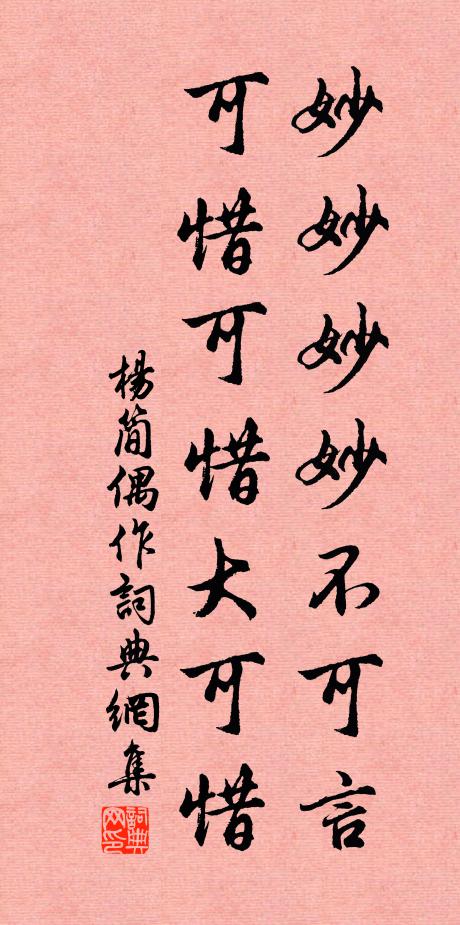 妙妙妙妙不可言
可惜可惜大可惜
楊簡偶作詞典網集
詞典
网印